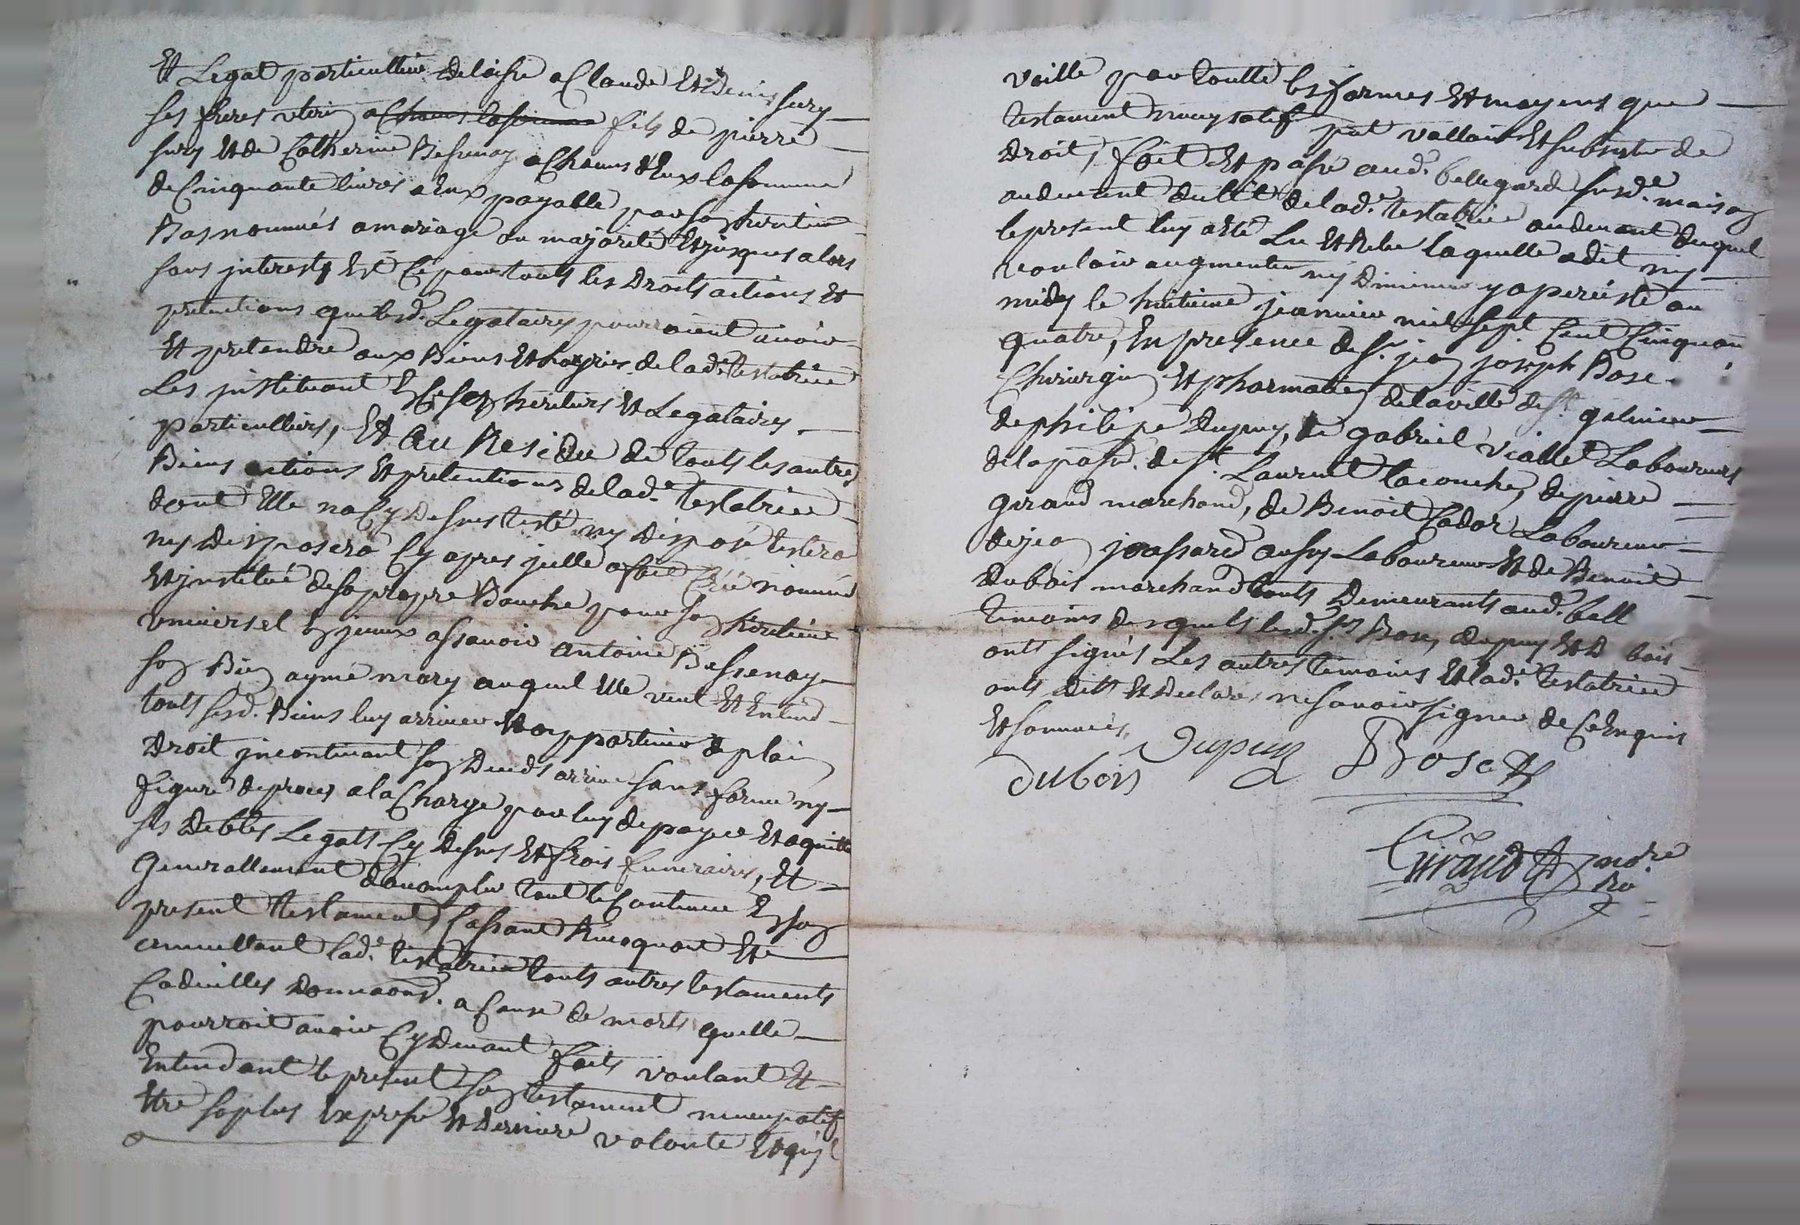 Et Legat particullier delaisse a Claude Et Denis Sury
ses freres uterin a Chacun la somme fils de pierre
Sury Et de Catherine Bessenay a Chacun d'Eux la somme
de Cinquante livres a Eux payable par son heritier
Bas nommés a mariage ou majorité Et jusques alors
sans interests Et Ce pour touts les Droits actions Et
pretentions que lesd. Legataires pourroient avoir
Et pretendre aux Biens Et hoyries de lad. testatrice
Les instituant En Ce ses heritiers Et Legataires
particulliers, Et Au Residu de touts les autres
Biens actions Et pretentions de lad. testatrice
dont Elle na Cy Dessus testé ny disposé testera
ny disposera Cy apres jcelle a fait Créé nommé
Et jnstitué de sa propre Bouche pour son heritier
universel En jceux assavoir antoine Bessenay
son Bien aymé mary auquel Elle veut Et Entend
touts sesd. Biens luy arriver Et appartenir de plain
Droit jncontinant son Deceds arrivé sans forme ny
figure de proces a la Charge par luy de payer Et aquitter
ses Debtes Legats Cy dessus Et frais funeraires, Et
Generallement d'accomplir tout le Contenu En son
present testament, Cassant Revoquant Et
annullant lad. testatrice touts autres testaments
Codicilles Donnaons. a Cause de morts quelle
pourroit avoir Cy Devant faits voulant Et
Entendant le present son testament nuncupatif
Etre sa plus Expresse Et derniere volonté Et quil
vaille par toutte les formes Et moyens que
testament nuncupatif peut valloir Et subsister de
Droit, fait Et passé aud. bellegarde susd. maison
audevant du lit de lad. testatrice audevant duquel
le present luy a Eté Lu Et Relu Laquelle a dit n'y
vouloir augmenter ny Diminuer y a persisté au
midy le huitieme jeanvier mil sept Cent Cinquan
quatre, En presence de Sr. jean joseph Bose
Chirurgien Et pharmatien de la ville de St. galmier
de philipe Dupuy, de gabriel Viallet Laboureurs
de la parr. de St. Laurent la conche, de pierre
girand marchand, de Benoit Cador Laboureur
de jean joassard aussy Laboureur Et de Benoit
Dubois marchand touts Demeurants aud. bell
temoins desquels lesd. Srs. Bose, dupuy Et D bois
onts signés Les autres temoins Et lad. testatrice
onts dits Et Declarés ne savoir signer de Ce Enquis
Et sommés,
Dupuy Bose
dubois
Giraud